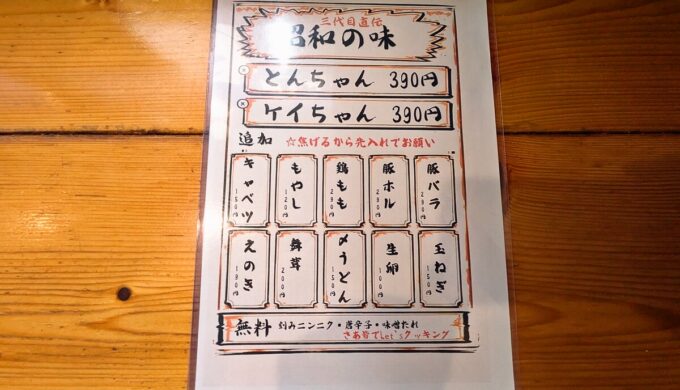 三代目直伝
昭和の味
とんちゃん 390円
ケイちゃん 390円
追加 ☆焦げるから先入れでお願い
豚バラ 290円
豚ホル 290円
鶏もも 290円
もやし 120円
キャベツ 150円
玉ねぎ 150円
生卵 100円
〆うどん 150円
舞茸 200円
えのき 190円
無料 刻みニンニク・唐辛子・味噌だれ
さあ皆でLet'sクッキング